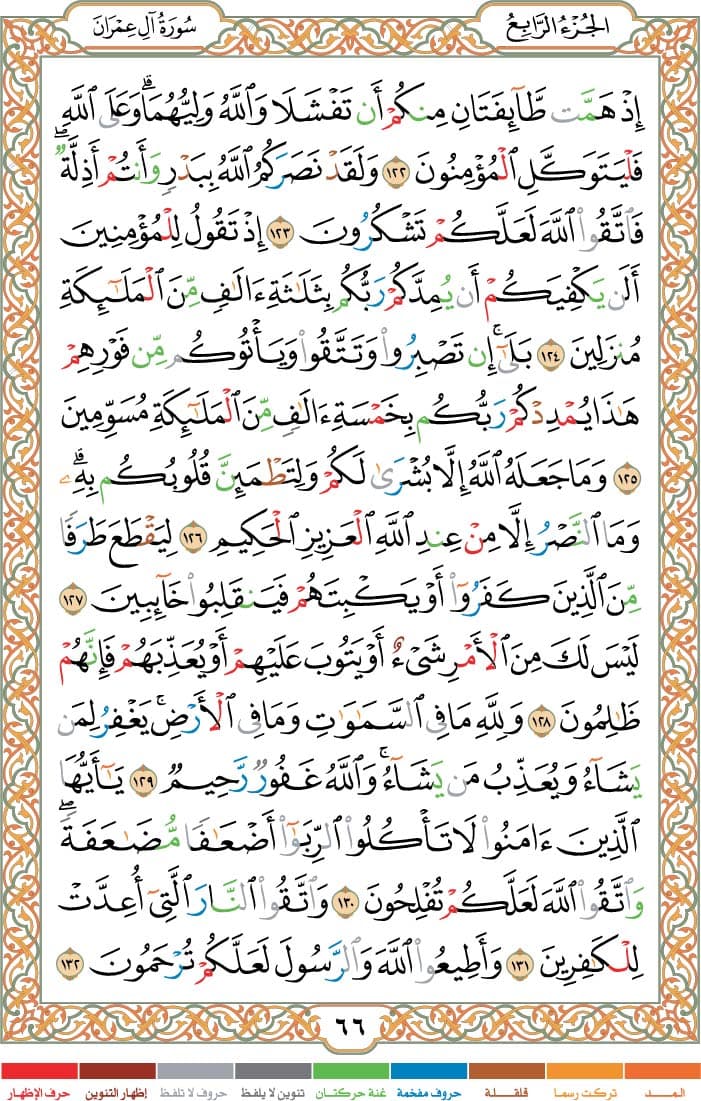 الجُزْءُ الرَّابِعُ
سُورَةُ آلِ عِمْرَانَ
إِذْ هَمَّت طَّآئِفَتَانِ مِنكُمْ أَن تَفْشَلَا وَٱللَّهُ وَلِيُّهُمَا ۗ وَعَلَى ٱللَّهِ
فَلْيَتَوَكَّلِ ٱلْمُؤْمِنُونَ ١٢٢ وَلَقَدْ نَصَرَكُمُ ٱللَّهُ بِبَدْرٍ وَأَنتُمْ أَذِلَّةٌ ۖ
فَٱتَّقُوا۟ ٱللَّهَ لَعَلَّكُمْ تَشْكُرُونَ ١٢٣ إِذْ تَقُولُ لِلْمُؤْمِنِينَ
أَلَن يَكْفِيَكُمْ أَن يُمِدَّكُمْ رَبُّكُم بِثَلَٰثَةِ ءَالَٰفٍ مِّنَ ٱلْمَلَٰٓئِكَةِ
مُنزَلِينَ ١٢٤ بَلَىٰٓ ۚ إِن تَصْبِرُوا۟ وَتَتَّقُوا۟ وَيَأْتُوكُم مِّن فَوْرِهِمْ
هَٰذَا يُمْدِدْكُمْ رَبُّكُم بِخَمْسَةِ ءَالَٰفٍ مِّنَ ٱلْمَلَٰٓئِكَةِ مُسَوِّمِينَ
١٢٥ وَمَا جَعَلَهُ ٱللَّهُ إِلَّا بُشْرَىٰ لَكُمْ وَلِتَطْمَئِنَّ قُلُوبُكُم بِهِۦ ۗ
وَمَا ٱلنَّصْرُ إِلَّا مِنْ عِندِ ٱللَّهِ ٱلْعَزِيزِ ٱلْحَكِيمِ ١٢٦ لِيَقْطَعَ طَرَفًا
مِّنَ ٱلَّذِينَ كَفَرُوٓا۟ أَوْ يَكْبِتَهُمْ فَيَنقَلِبُوا۟ خَآئِبِينَ ١٢٧
لَيْسَ لَكَ مِنَ ٱلْأَمْرِ شَىْءٌ أَوْ يَتُوبَ عَلَيْهِمْ أَوْ يُعَذِّبَهُمْ فَإِنَّهُمْ
ظَٰلِمُونَ ١٢٨ وَلِلَّهِ مَا فِى ٱلسَّمَٰوَٰتِ وَمَا فِى ٱلْأَرْضِ ۚ يَغْفِرُ لِمَن
يَشَآءُ وَيُعَذِّبُ مَن يَشَآءُ ۚ وَٱللَّهُ غَفُورٌ رَّحِيمٌ ١٢٩ يَٰٓأَيُّهَا
ٱلَّذِينَ ءَامَنُوا۟ لَا تَأْكُلُوا۟ ٱلرِّبَوٰٓا۟ أَضْعَٰفًا مُّضَٰعَفَةً ۖ
وَٱتَّقُوا۟ ٱللَّهَ لَعَلَّكُمْ تُفْلِحُونَ ١٣٠ وَٱتَّقُوا۟ ٱلنَّارَ ٱلَّتِىٓ أُعِدَّتْ
لِلْكَٰفِرِينَ ١٣١ وَأَطِيعُوا۟ ٱللَّهَ وَٱلرَّسُولَ لَعَلَّكُمْ تُرْحَمُونَ ١٣٢
٦٦
المـــد تركت رسما قلقـــلة حروف مفخمة غنة حركتان تنوين لا يلفظ حروف لا تلفظ إظهار التنوين حرف الإظهار